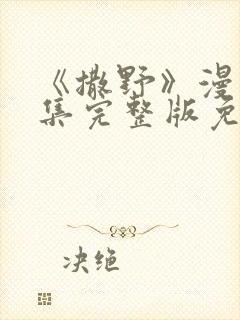 《撒野》漫
集完整版免
决绝